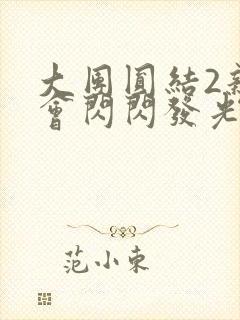 大團圓結2新
會閃閃發光
范小東